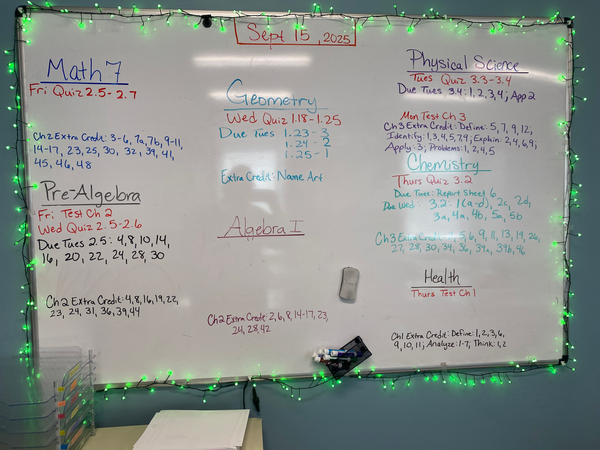 Sept 15, 2025
Math 7
Fri Quiz 2.5-2.7
Ch2 Extra Credit: 3-6, 7a, 7b, 9-11,
14-17, 23, 25, 30, 32, 39, 41,
45, 46, 48
Pre-Algebra
Fri Test Ch 2
Wed Quiz 2.5-2.6
Due Tues 2.5: 4, 8, 10, 14,
16, 20, 22, 24, 28, 30
Ch 2 Extra Credit: 4, 8, 16, 19, 22,
23, 24, 31, 36, 39, 44
Geometry
Wed Quiz 1.18-1.25
Due Tues 1.23-3
1.24-2
1.25-1
Extra Credit: Name Art
Algebra I
Ch 2 Extra Credit: 2, 6, 8, 14-17, 23,
24, 28, 42
Physical Science
Tues Quiz 3.3-3.4
Due Tues 3.4: 1, 2, 3, 4; App 2
Mon Test Ch 3
Ch 3 Extra Credit: Define: 5, 7, 9, 12,
Identify: 1, 3, 4, 5, 7, 9; Explain: 2, 4, 6, 9;
Apply: 3; Problems: 1, 2, 4, 5
Chemistry
Thurs Quiz 3.2
Due Tues: Report Sheet 6
Due Wed: 3.2: 1(a-d), 2c, 2d,
3a, 4a, 4b, 5a, 5b
Ch 3 Extra Credit: 5, 6, 9, 11, 13, 19, 26,
27, 28, 30, 34, 36, 39a, 39b, 46
Health
Thurs Test Ch 1
Ch1 Extra Credit: Define: 1, 2, 3, 6,
9, 10, 11; Analyze: 1-7; Think: 1, 2